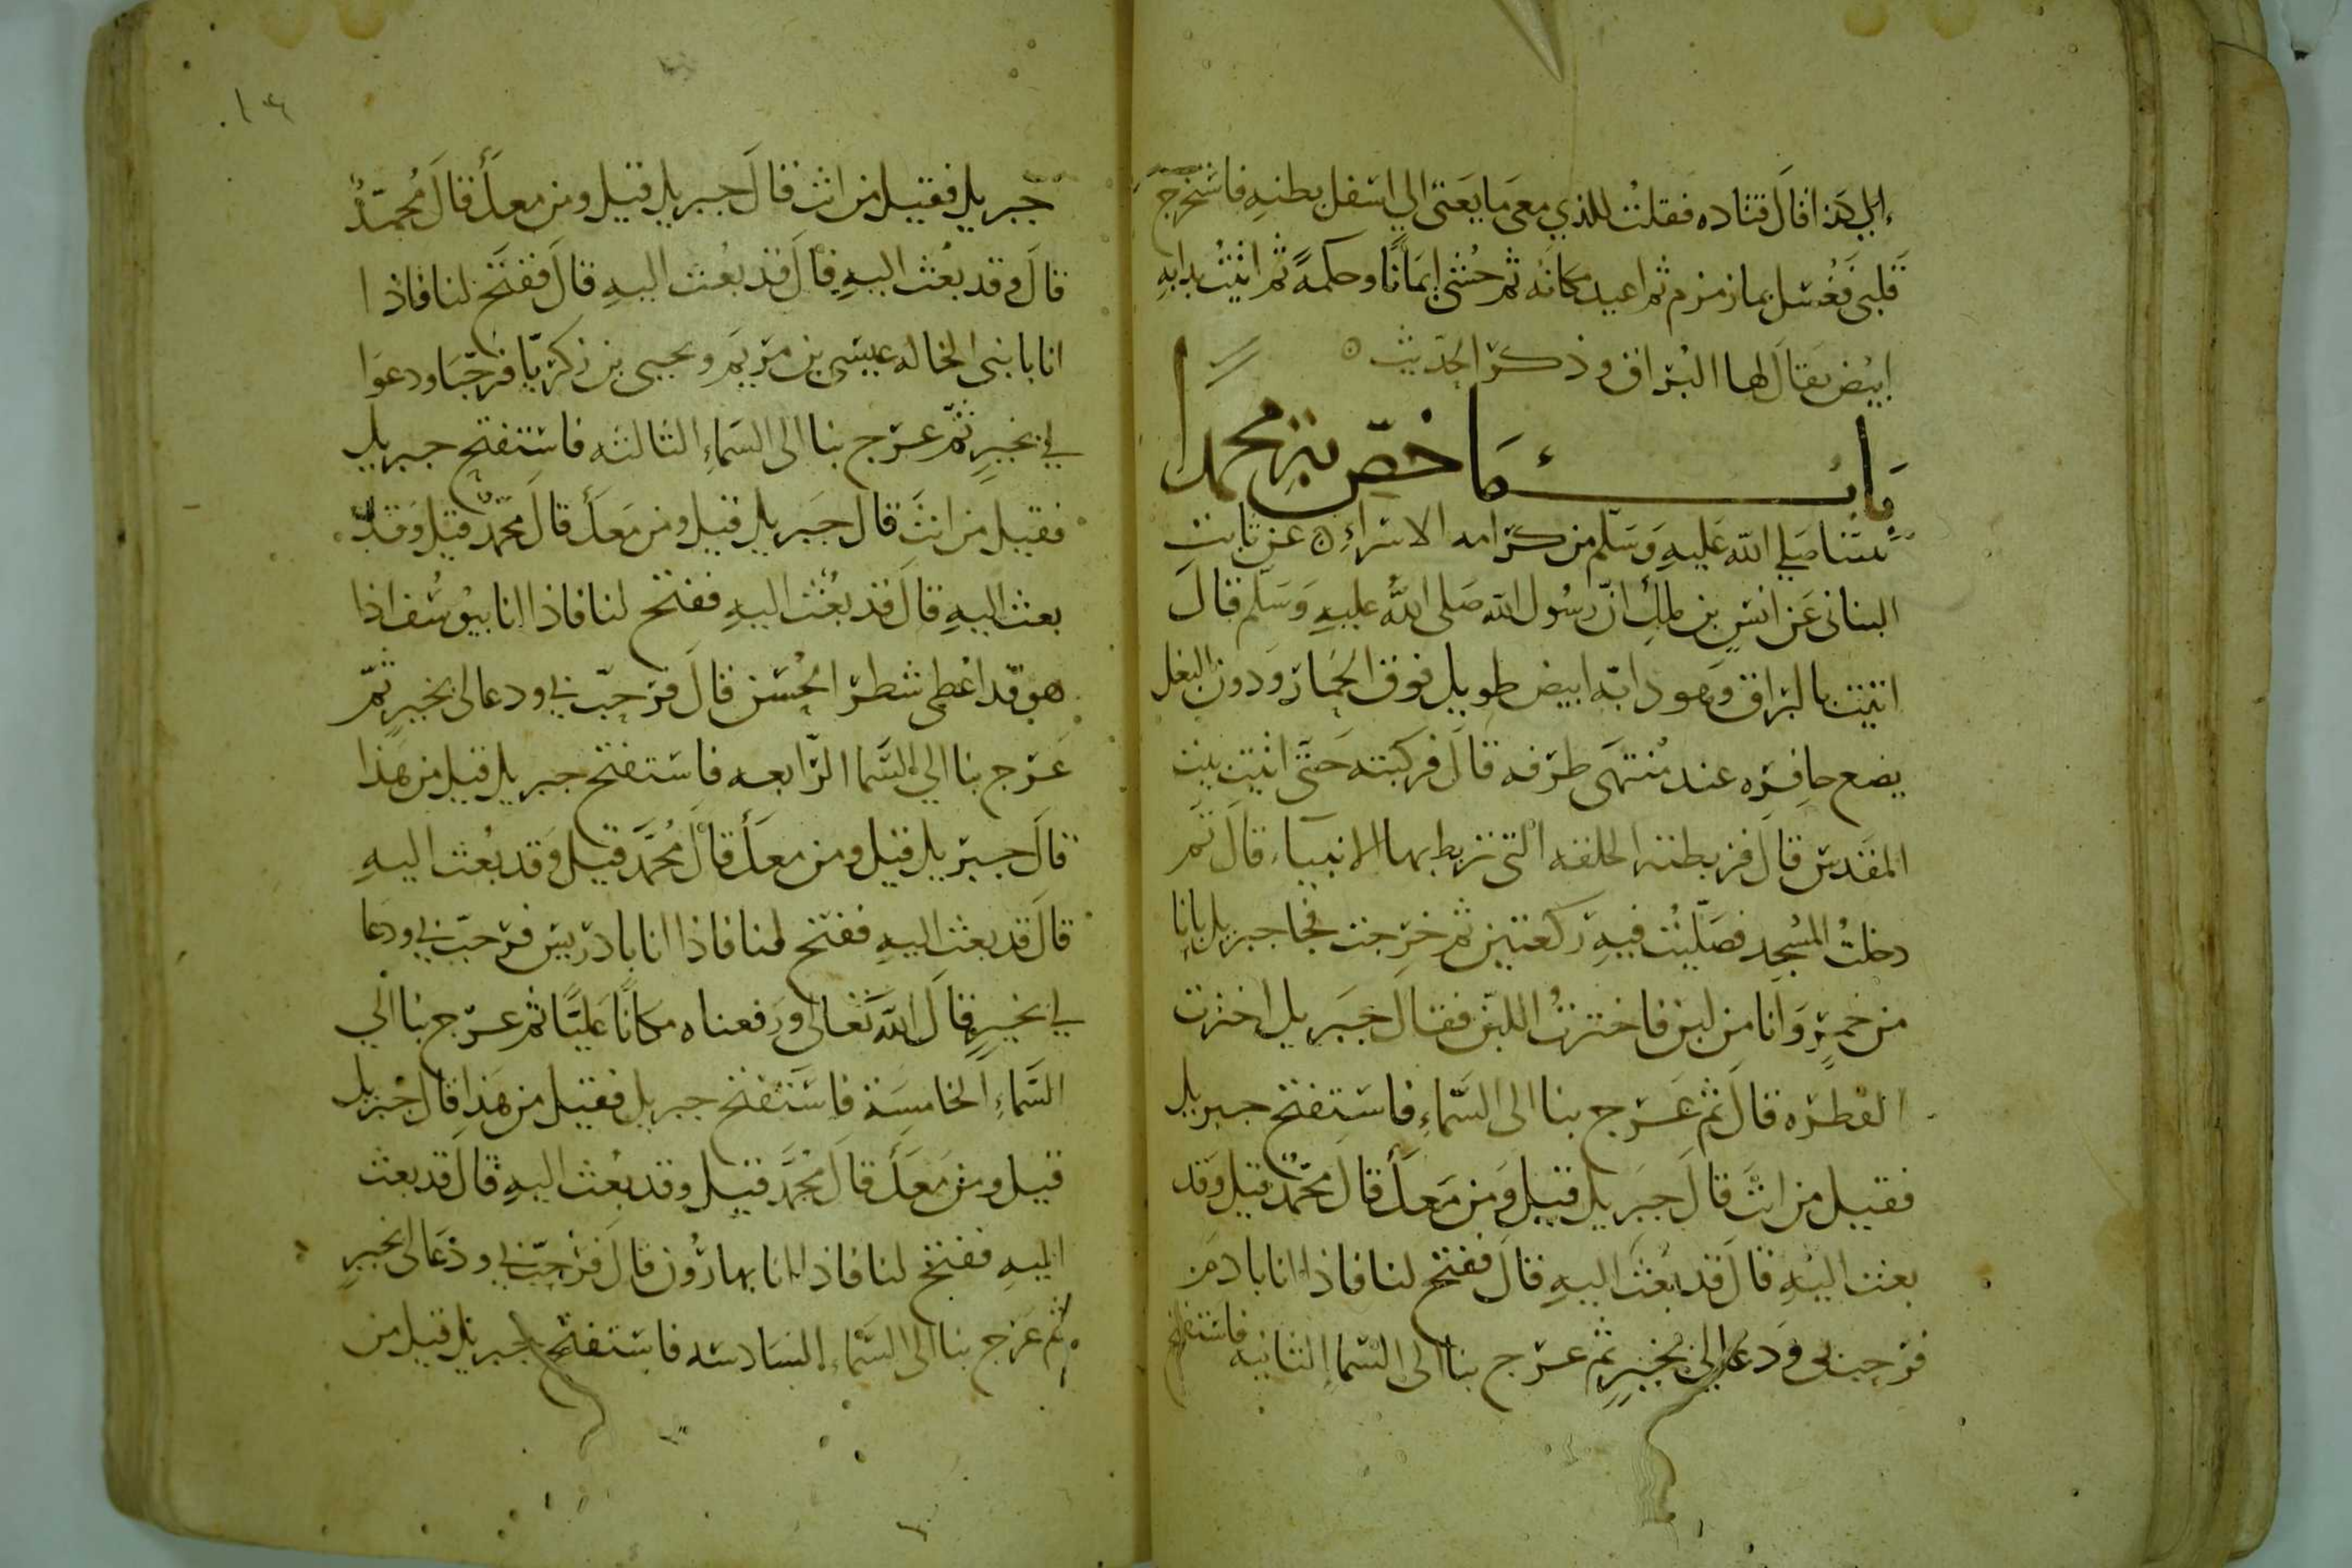 إلى هذا قال قتاده فقلت للذي معي ما يعني الي اسفل بطنه فاستخرج
قلبي فغسل بما زمزم ثم اعيد مكانه ثم حشي ايمانا وحكمة ثم اتيت بدابه
ابيض يقال لها البراق وذكر الحديث
باب ما خص به محمدا
نبينا صلي الله عليه وسلم من كرامه الاسراء عن ثابت
البناني عن انس بن ملك ان رسول الله صلى الله عليه وسلم قال
اتيت بالبراق وهو دابه ابيض طويل فوق الحمار ودون البغل
يضع حافره عند منتهى طرفه قال فركبته حتى اتيت بيت
المقدس قال فربطته الحلقه التي تربط بها الانبياء قال ثم
دخلت المسجد فصليت فيه ركعتين ثم خرجت فجا جبريل بانا
من خمر وانا من لبن فاخترت اللبن فقال جبريل اخترت
الفطره قال ثم عرج بنا الى السماء فاستفتح جبريل
فقيل من انت قال جبريل قيل ومن معك قال محمد قيل وقد
بعث اليه قال قد بعث اليه قال ففتح لنا فاذا انا بادم
فرحب بي ودعا لي بخير ثم عرج بنا الى السماء الثانيه فاستفتح
جبريل فقيل من انت قال جبريل قيل ومن معك قال محمد
قال وقد بعث اليه قال قد بعث اليه قال ففتح لنا فاذا
انا بابني الخاله عيسى بن مريم ويحيى بن زكريا فرحبا ودعوا
لي بخير ثم عرج بنا الى السماء الثالثه فاستفتح جبريل
فقيل من انت قال جبريل قيل ومن معك قال محمد قيل وقد
بعث اليه قال قد بعث اليه ففتح لنا فاذا انا بيوسف اذا
هو قد اعطي شطر الحسن قال فرحب بي ودعا لي بخير ثم
عرج بنا الي السما الرابعه فاستفتح جبريل قيل من هذا
قال جبريل قيل ومن معك قال محمد قيل وقد بعث اليه
قال قد بعث اليه ففتح لنا فاذا انا بادريس فرحب بي ودعا
لي بخير قال الله تعالى ورفعناه مكانا عليا ثم عرج بنا الي
السماء الخامسة فاستفتح جبريل فقيل من هذا قال جبريل
قيل ومن معك قال محمد قيل وقد بعث اليه قال قد بعث
اليه ففتح لنا فاذا انا بهارون قال فرحب بي ودعا لي بخير
ثم عرج بنا الى السماء السادسه فاستفتح جبريل قيل من